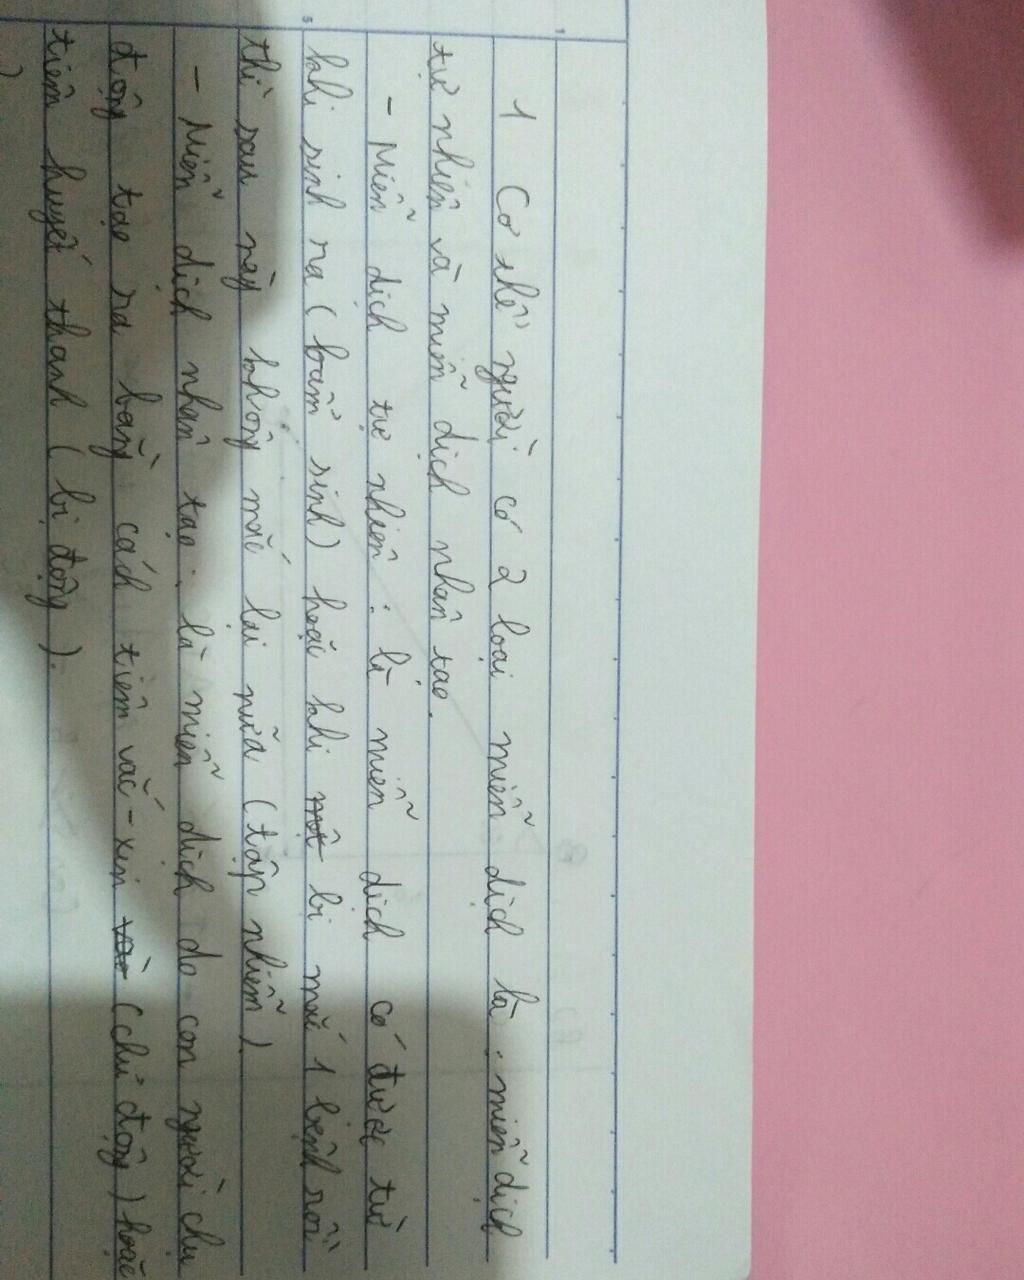 1 Cơ thể người có 2 loại miễn dịch là : miễn dịch
tự nhiên và miễn dịch nhân tạo.
- Miễn dịch tự nhiên : là miễn dịch có được từ
khi sinh ra (bẩm sinh) hoặc khi bị mắc 1 bệnh rồi
thì sau này không mắc lại nữa (tập nhiễm).
- Miễn dịch nhân tạo : là miễn dịch do con người chủ
động tạo ra bằng cách tiêm vắc-xin (chủ động) hoặc
tiêm huyết thanh (bị động).